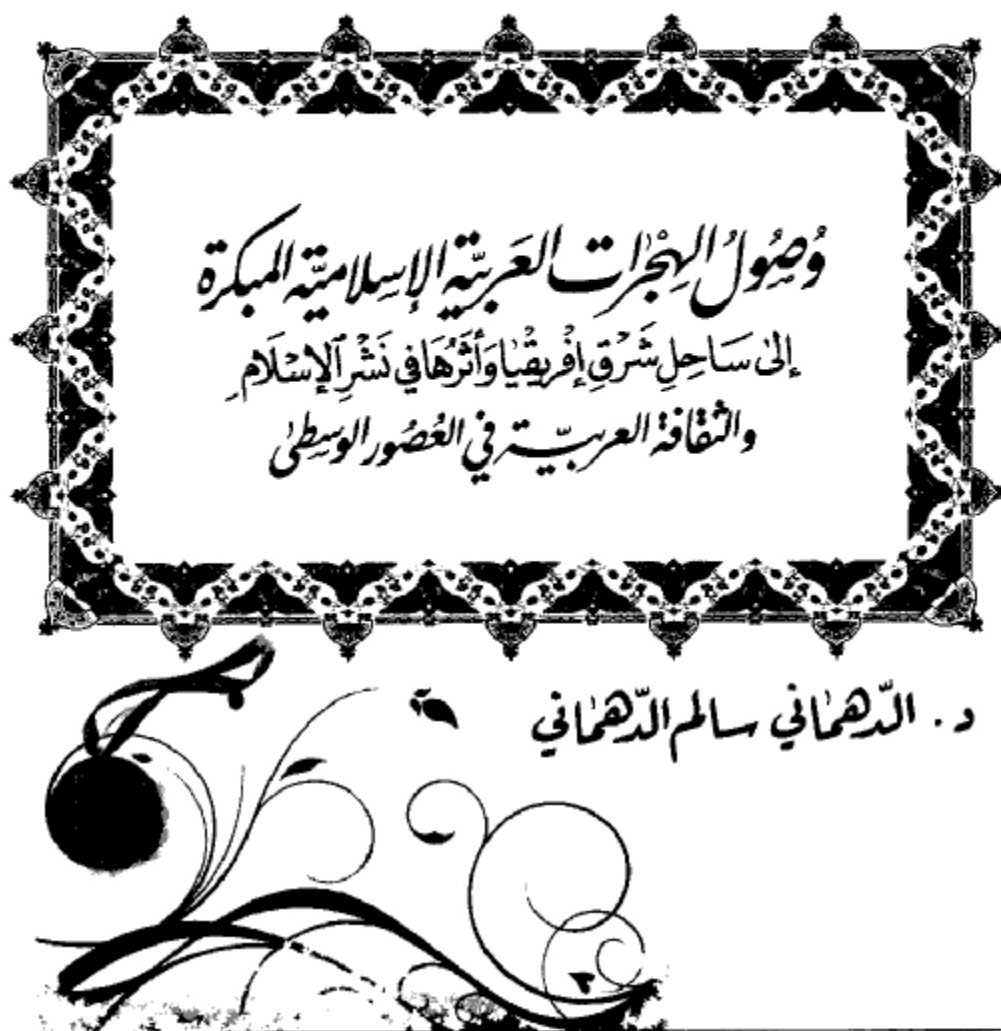 وُصُولُ الهِجْرَات العَرَبيَّة الإسِلاميَّة المبكرة
إلىٰ سَاحِلِ شَرْقِ إفْريقْيَا وَأثَرُهَا في نَشْرِ الإسْلَامِ
والثقافة العربيّة في العُصُور الوسطىٰ
د. الدّهمَاني سالم الدّهمَاني